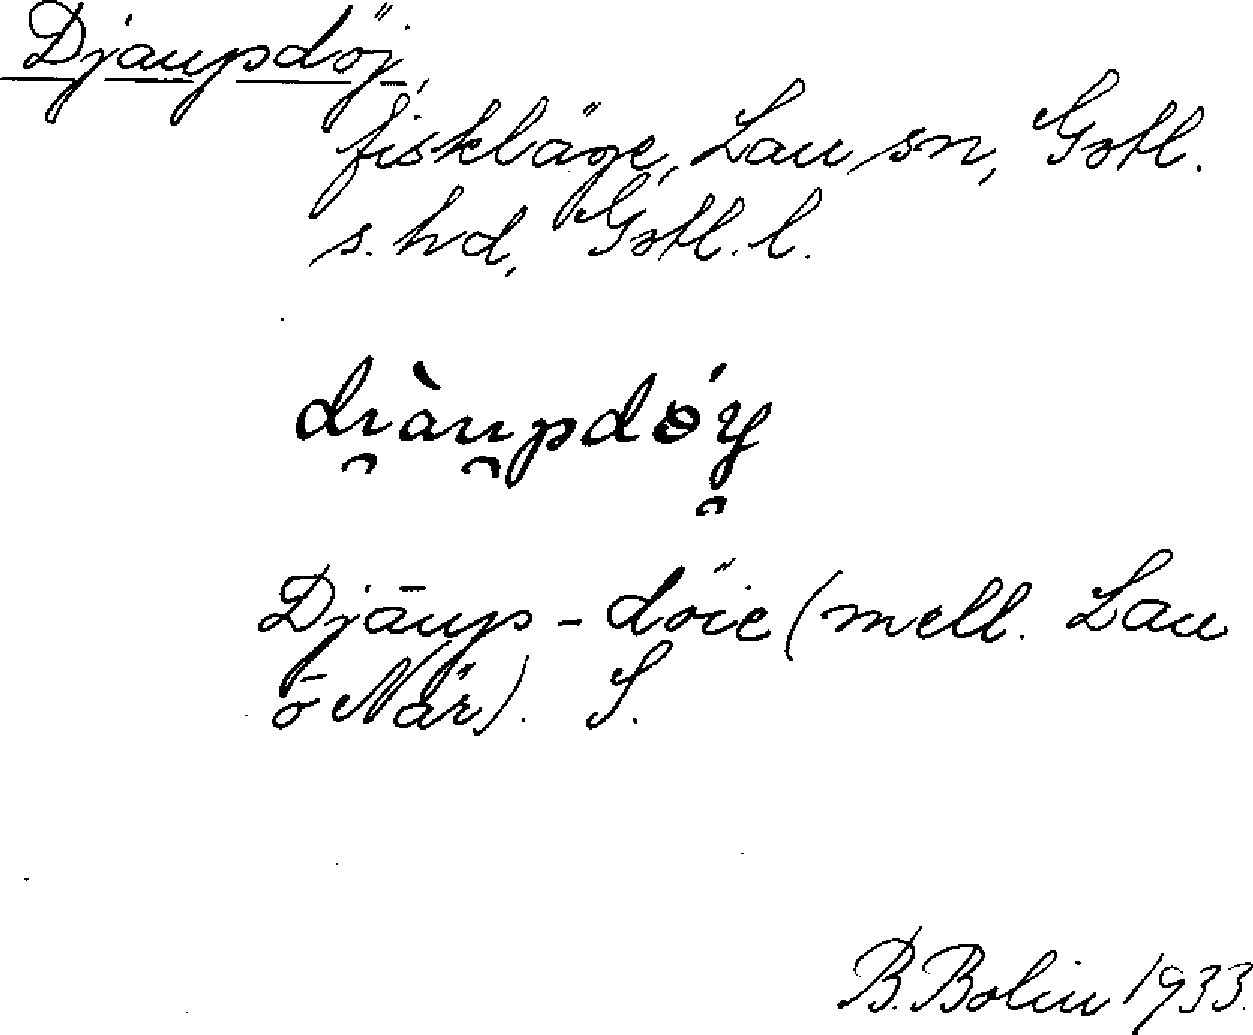 Djaupdöj,
fiskläge, Lau sn, Gotl.
s. hd, Gotl. l.
di̯àu̯pdǿy̯
Djāup-döie (mell. Lau
ō När). S.
B. Bolin 1933.